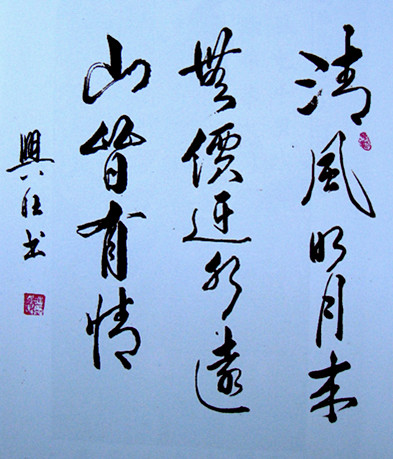 清風明月本
無價近水遠
山皆有情
興书